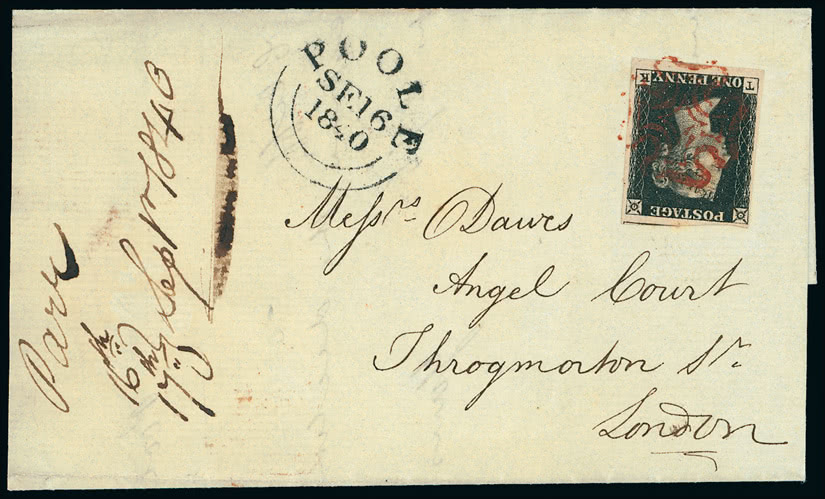 POOLE
SE 16
1840
POSTAGE
T ONE PENNY K
Messrs Dawes
Angel Court
Throgmorton St.
London
Parr
16th
17th Sept 1840